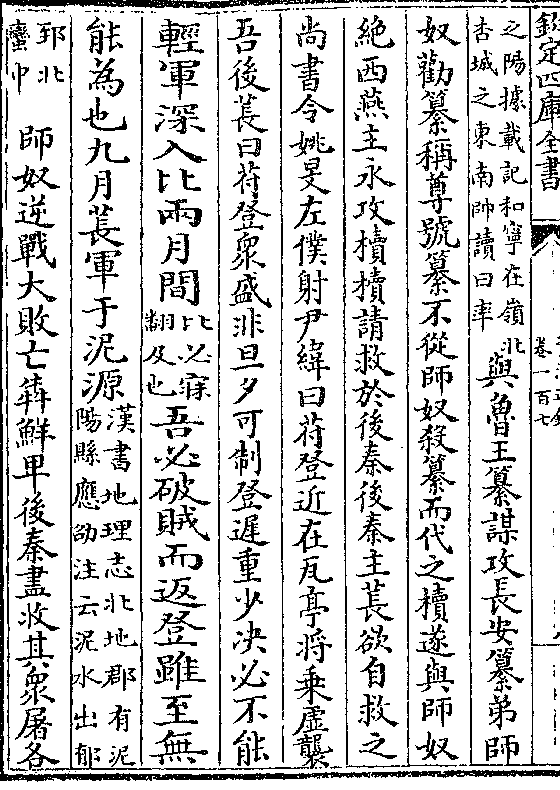 欽定四庫全書
卷一百七
之陽據載記和寧在嶺北
杏城之東南帥讀曰率
與魯王纂謀攻長安纂弟師
奴勸纂稱尊號纂不從師奴殺纂而代之櫝遂與師奴
絶西燕主永攻櫝櫝請救於後秦後秦主萇欲自救之
尚書令姚旻左僕射尹緯曰苻登近在瓦亭將乗虛襲
吾後萇曰苻登衆盛非旦夕可制登遲重少决必不能
輕軍深入比兩月間
比必寐
翻及也
吾必破賊而返登雖至無
能為也九月萇軍于泥源
漢書地理志北地郡有泥
陽縣應劭注云泥水出郁
郅北
蠻中
師奴逆戰大敗亡犇鮮卑後秦盡收其衆屠各